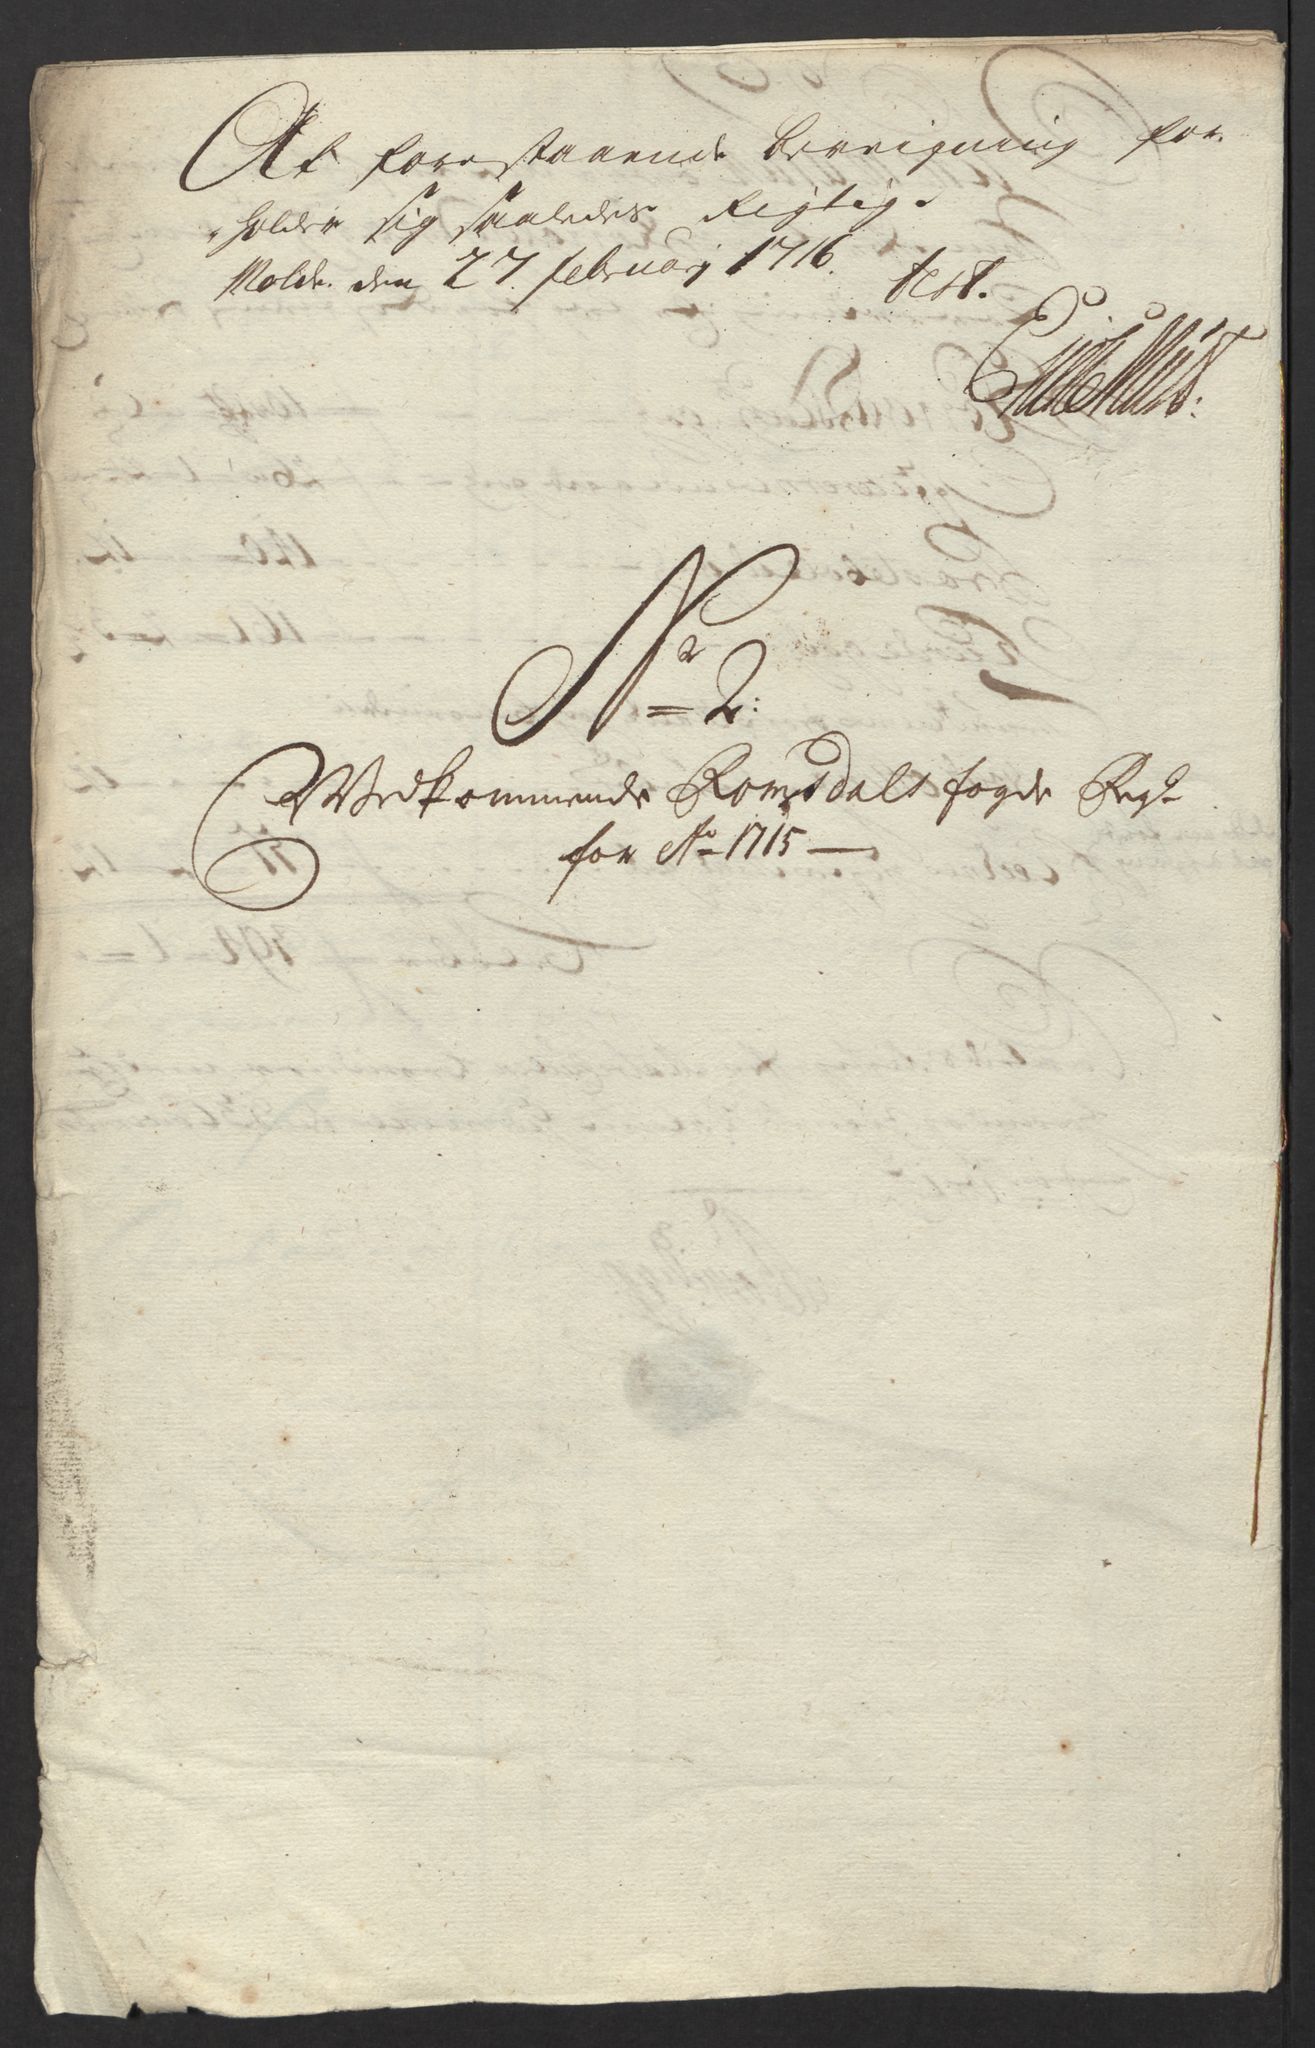 At forestaaende bereigning for-
holder sig saaledes Rigtig.
Molde den 27 februarj 1716. test.
No 2:
Vedkommende Romsdals fogde Regn
for Ao 1715